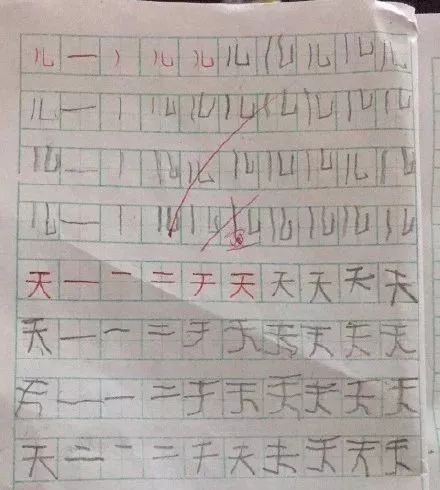 儿 一 丿 儿 儿 儿 儿 儿 儿 儿
儿 一 丿 儿 儿 儿 儿 儿 儿 儿
儿 一 丿 儿 儿 儿 儿 儿 儿 儿
儿 一 丿 儿 儿 儿 儿 儿 儿
天 一 一 二 于 天 天 天 天 天
天 一 一 二 于 天 天 天 天 天
天 一 一 二 于 天 天 天 天 天
天 二 一 二 于 天 天 天 天 天